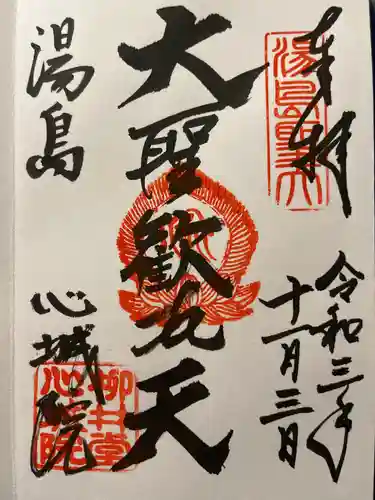 奉拝
湯島聖天
令和三年
十一月三日
大聖歓喜天
湯島
心城院
柳井堂
心城院